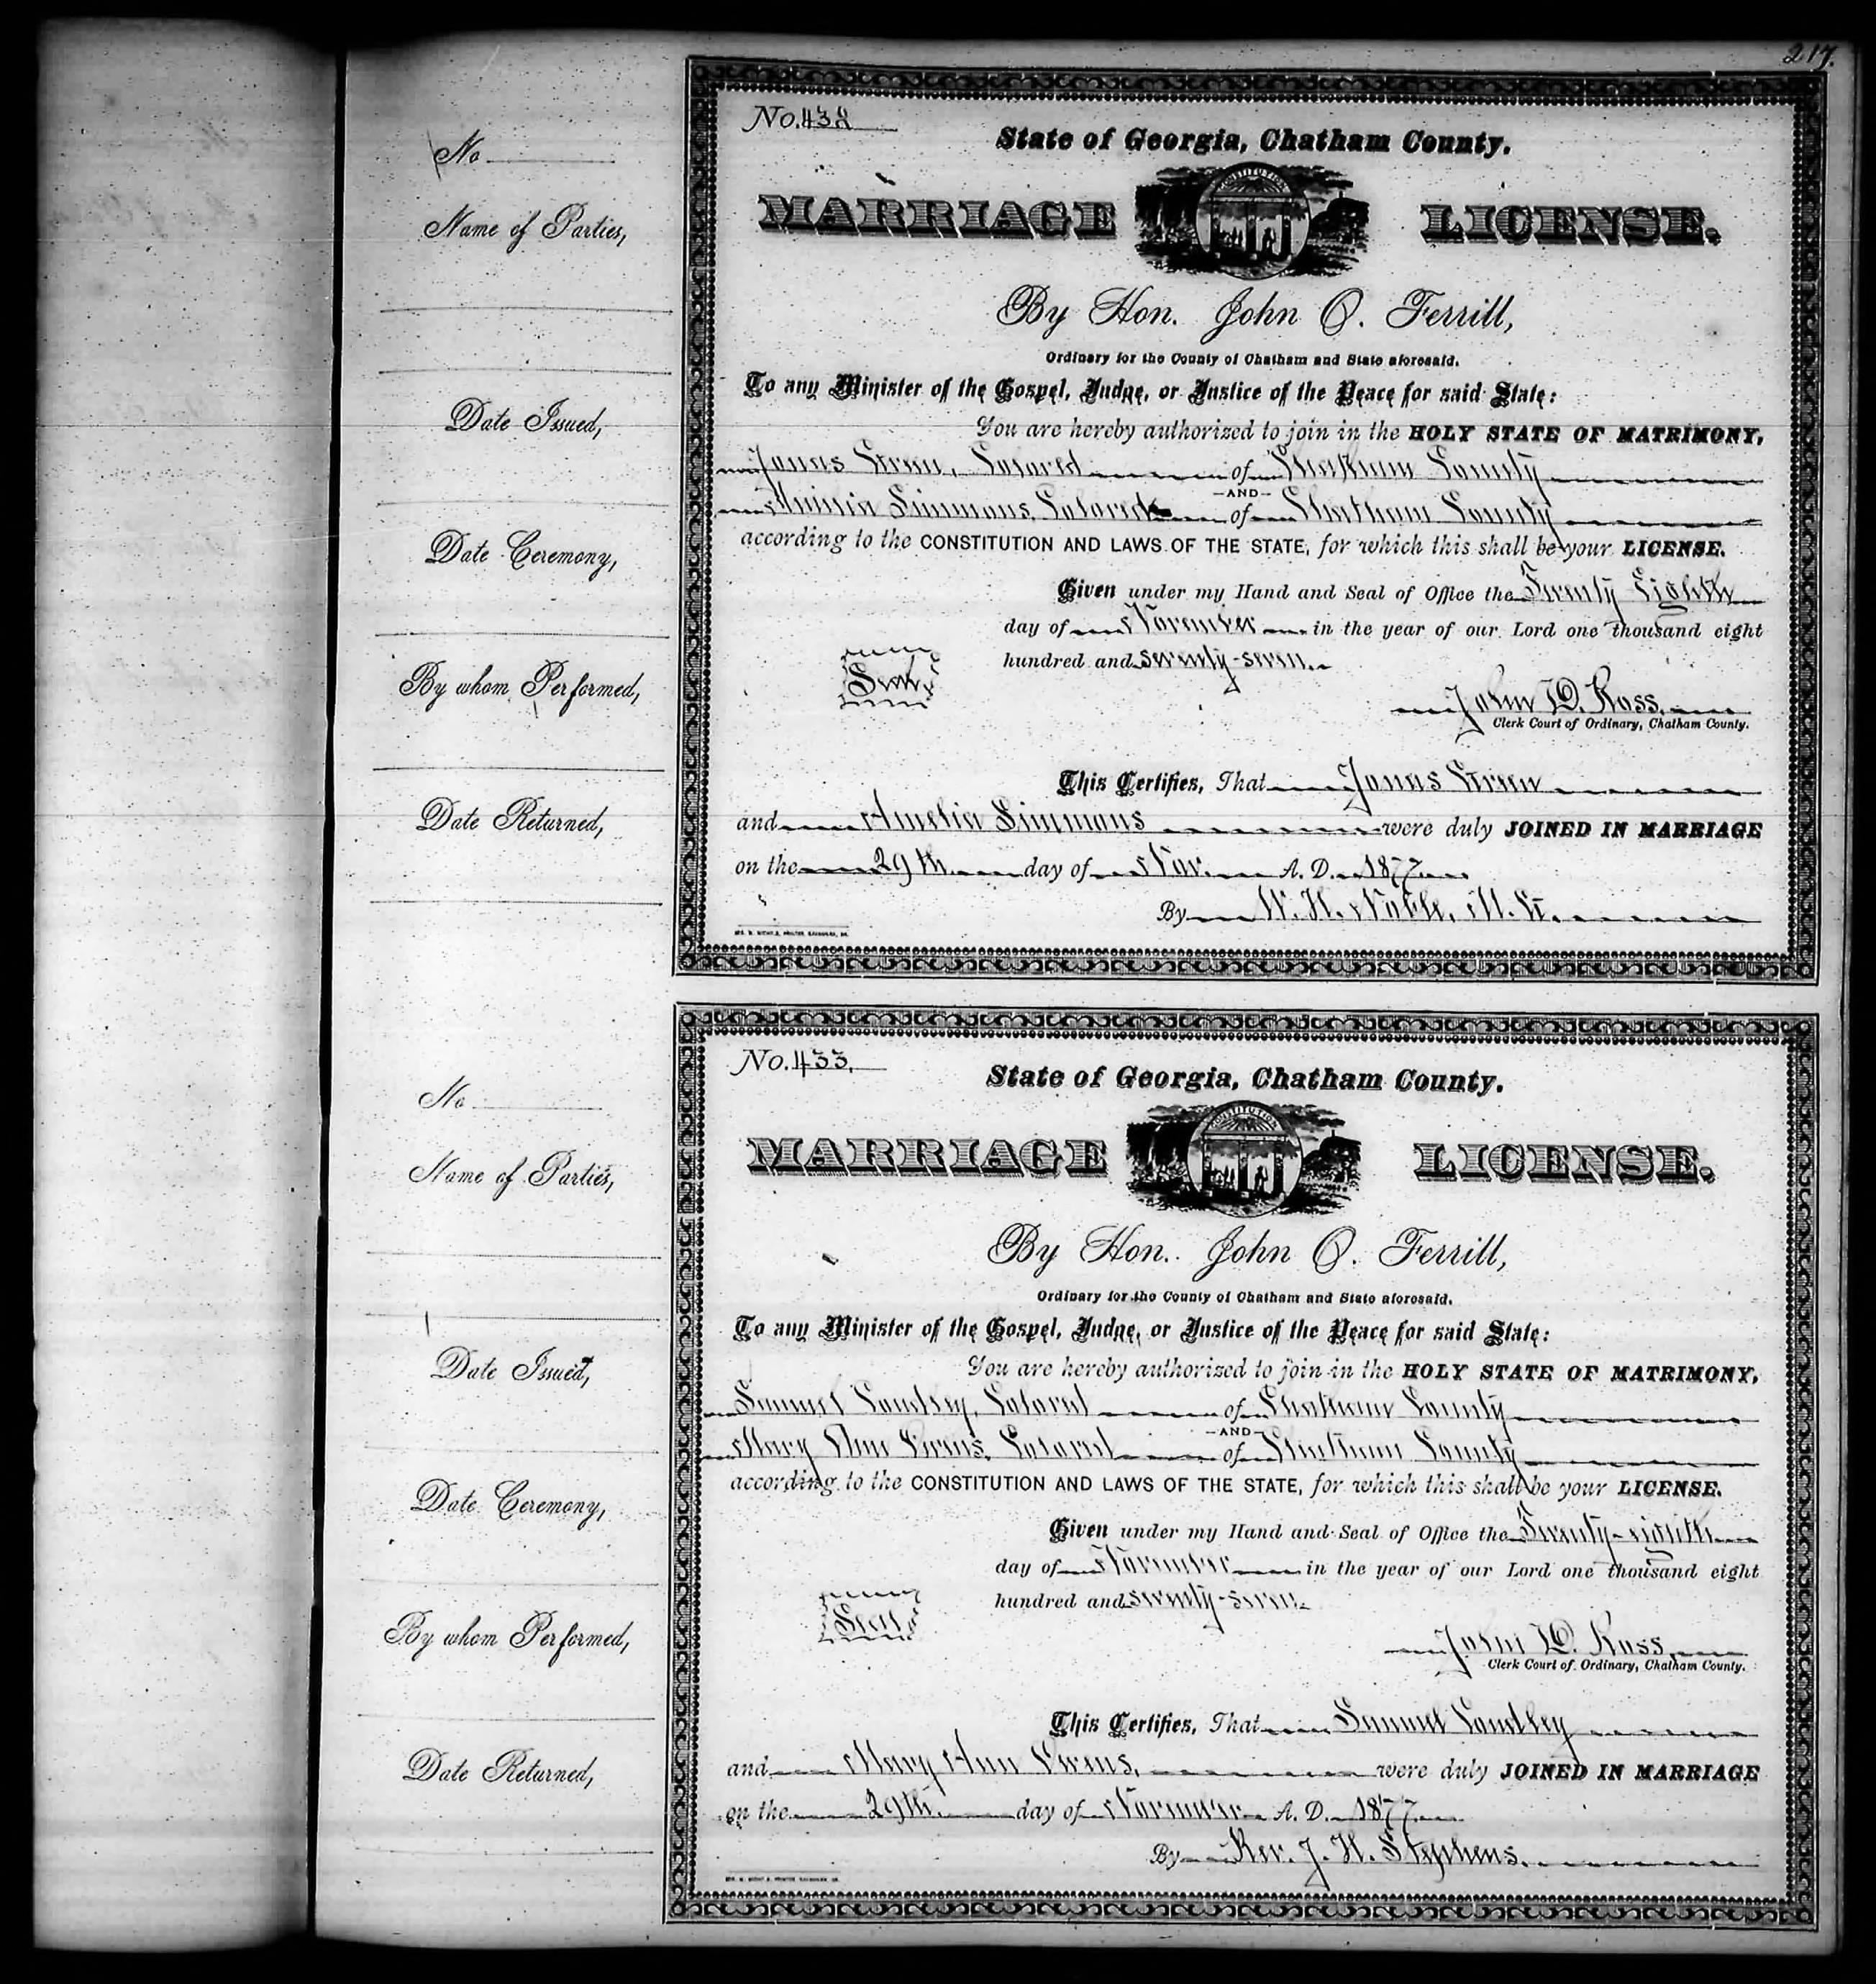 217.
No.
Name of Parties,
Date Issued,
Date Ceremony,
By whom Performed,
Date Returned,
No. 432
State of Georgia, Chatham County.
MARRIAGE LICENSE.
CONSTITUTION
By Hon. John O. Ferrill,
Ordinary for the County of Chatham and State aforesaid.
To any Minister of the Gospel, Judge, or Justice of the Peace for said State:
You are hereby authorized to join in the HOLY STATE OF MATRIMONY,
Jonas Green, Colored of Chatham County
AND
Simmons, Colored of Chatham County
according to the CONSTITUTION AND LAWS OF THE STATE, for which this shall be your LICENSE.
Given under my Hand and Seal of Office the Twenty Eighth
day of November in the year of our Lord one thousand eight
hundred and seventy-seven.
Seal
John D. Ross,
Clerk Court of Ordinary, Chatham County.
This Certifies, That Jonas Green
and Amelia Simmons were duly JOINED IN MARRIAGE
on the 29th day of Nov. A. D. 1877
By W. H. Noble, M. G.
No.
Name of Parties,
Date Issued,
Date Ceremony,
By whom Performed,
Date Returned,
No. 433.
State of Georgia, Chatham County.
MARRIAGE LICENSE.
CONSTITUTION
By Hon. John O. Ferrill,
Ordinary for the County of Chatham and State aforesaid.
To any Minister of the Gospel, Judge, or Justice of the Peace for said State:
You are hereby authorized to join in the HOLY STATE OF MATRIMONY,
Samuel Colored of Chatham County
AND
Mary Ann Colored of Chatham County
according to the CONSTITUTION AND LAWS OF THE STATE, for which this shall be your LICENSE.
Given under my Hand and Seal of Office the Twenty-eighth
day of November in the year of our Lord one thousand eight
hundred and seventy-seven.
Seal
John D. Ross,
Clerk Court of Ordinary, Chatham County.
This Certifies, That Samuel
and Mary Ann were duly JOINED IN MARRIAGE
on the 29th day of November A. D. 1877
By Rev. J. H. Stephens.